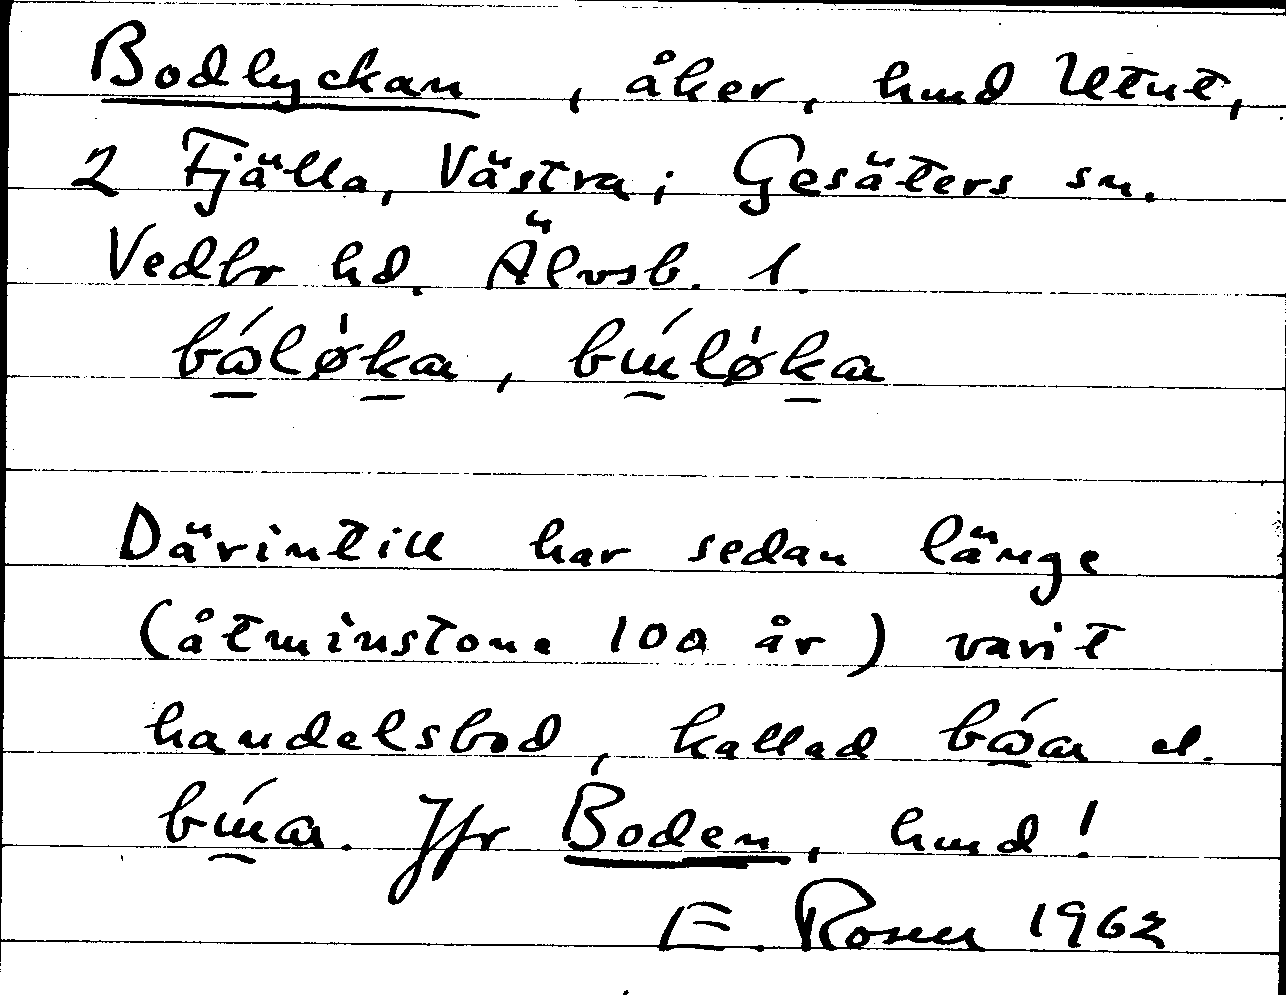 Bodlyckan, åker, hmd Utnt,
2 Fjälla, Västra; Gesäters sn.
Vedbr hd. Älvsb. l.
Därintill har sedan länge
(åtminstone 100 år) varit
handelsbod, kallad el.
Jfr Boden, hmd!
E. Rosen 1962